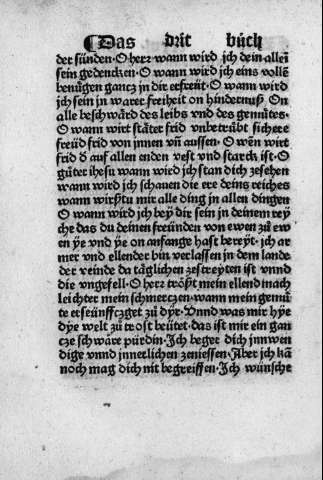 ¶Das drit bůch
der sünden·O herr wann wird jch dein alleī
sein gedencken·O wann wird jch eins vollē
benůgen gancz in dir erfreüt·O wann wird
jch sein in warer freiheit on hindernuß On
alle beschwärd des leibs vnd des gemůtes·
O wann wirt stäter frid vnbetrübt sichere
freüd frid von jnnen vñ aussen·O wen̄ wirt
frid ď auff allen enden vest vnd starck ist·O
gůter ihesu wann wird jch stan dich zesehen
wann wird jch schauen die ere deins reiches
wann wirstu mir alle ding in allen dingen
O wann wird jch beÿ dir sein in deinem reÿ
che das du deinen freünden von ewen zů ew
en ÿe vnd ÿe on anfange hast bereÿt·jch ar
mer vnd ellender bin verlassen in dem lande
der veinde da täglichen zestreyten ist vnnd
die vngefell·O herr tröst mein ellend mach
leichter mein schmerczen·wann mein gemů
te erseünfftczget zů dÿr·Vnnd was mir hÿe
dÿe welt zů trost beütet·das ist mir ein gan
cze schwäre pürdin·Jch beger dich jnnwen
dige vnnd jnnerlichen zeniessen·Aber jch kā
noch mag dich nit begreiffen·Jch wünsche